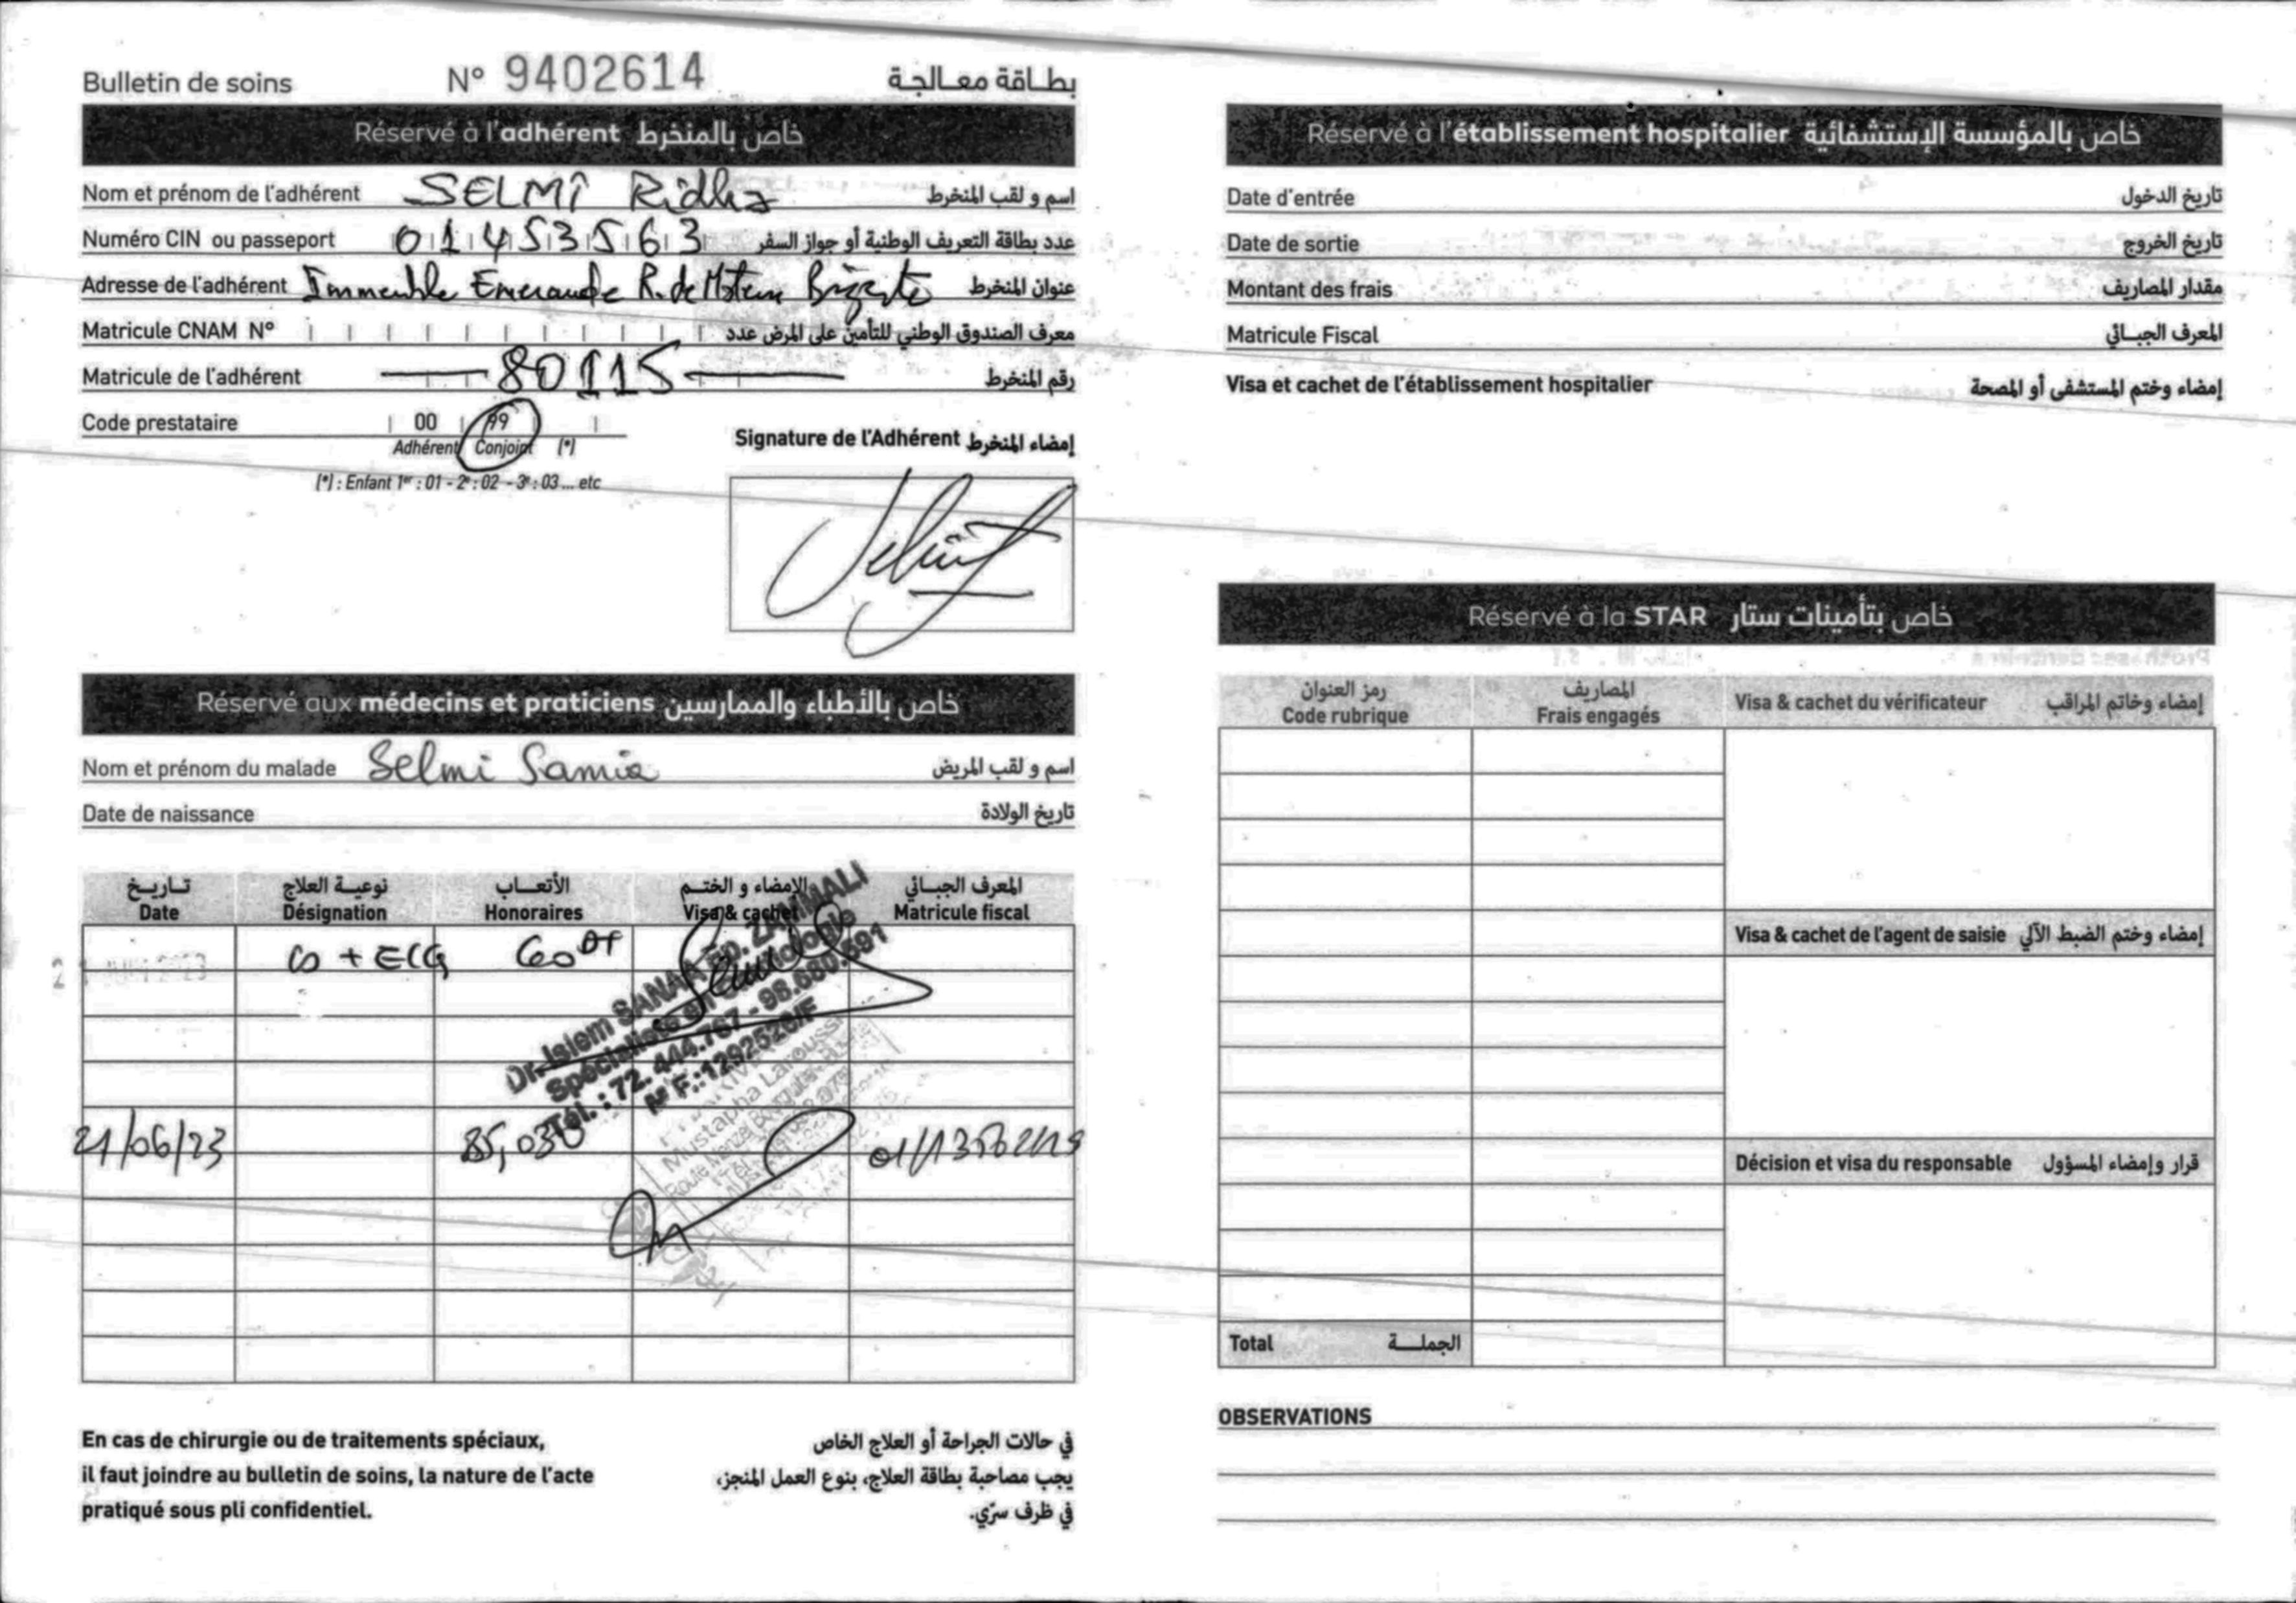 Bulletin de soins N° 9402614 بطاقة معالجة
Réservé à l'adhérent خاص بالمنخرط
Nom et prénom de l'adhérent SELMI Ridha اسم و لقب المنخرط
Numéro CIN ou passeport 01453563 عدد بطاقة التعريف الوطنية أو جواز السفر
Adresse de l'adhérent Immeuble Emeraude R. de عنوان المنخرط
Matricule CNAM N° معرف الصندوق الوطني للتأمين على المرض عدد
Matricule de l'adhérent 80115 رقم المنخرط
Code prestataire 00 99
Adhérent Conjoint (*)
(*) : Enfant 1er : 01 - 2e : 02 - 3e : 03 ... etc
Signature de l'Adhérent إمضاء المنخرط
Réservé aux médecins et praticiens خاص بالأطباء والممارسين
Nom et prénom du malade Selmi Samia اسم و لقب المريض
Date de naissance تاريخ الولادة
تاريخ نوعية العلاج الأتعاب الإمضاء و الختم المعرف الجبائي
Date Désignation Honoraires Visa & cachet Matricule fiscal
+ ECG 60 DT
Dr. Islem SANAA Ep. ZAMMALI
Spécialiste en Cardiologie
Tél. : 72.444.767 - 98.680.591
M F.:1292520/F
Mustapha Laroussi
21/06/23 85,030
En cas de chirurgie ou de traitements spéciaux,
il faut joindre au bulletin de soins, la nature de l'acte
pratiqué sous pli confidentiel.
في حالات الجراحة أو العلاج الخاص
يجب مصاحبة بطاقة العلاج، بنوع العمل المنجز،
في ظرف سرّي.
Réservé à l'établissement hospitalier خاص بالمؤسسة الإستشفائية
Date d'entrée تاريخ الدخول
Date de sortie تاريخ الخروج
Montant des frais مقدار المصاريف
Matricule Fiscal المعرف الجبائي
Visa et cachet de l'établissement hospitalier إمضاء وختم المستشفى أو المصحة
Réservé à la STAR خاص بتأمينات ستار
رمز العنوان المصاريف
Code rubrique Frais engagés Visa & cachet du vérificateur إمضاء وخاتم المراقب
Visa & cachet de l'agent de saisie إمضاء وختم الضبط الآلي
Décision et visa du responsable قرار وإمضاء المسؤول
Total الجملة
OBSERVATIONS